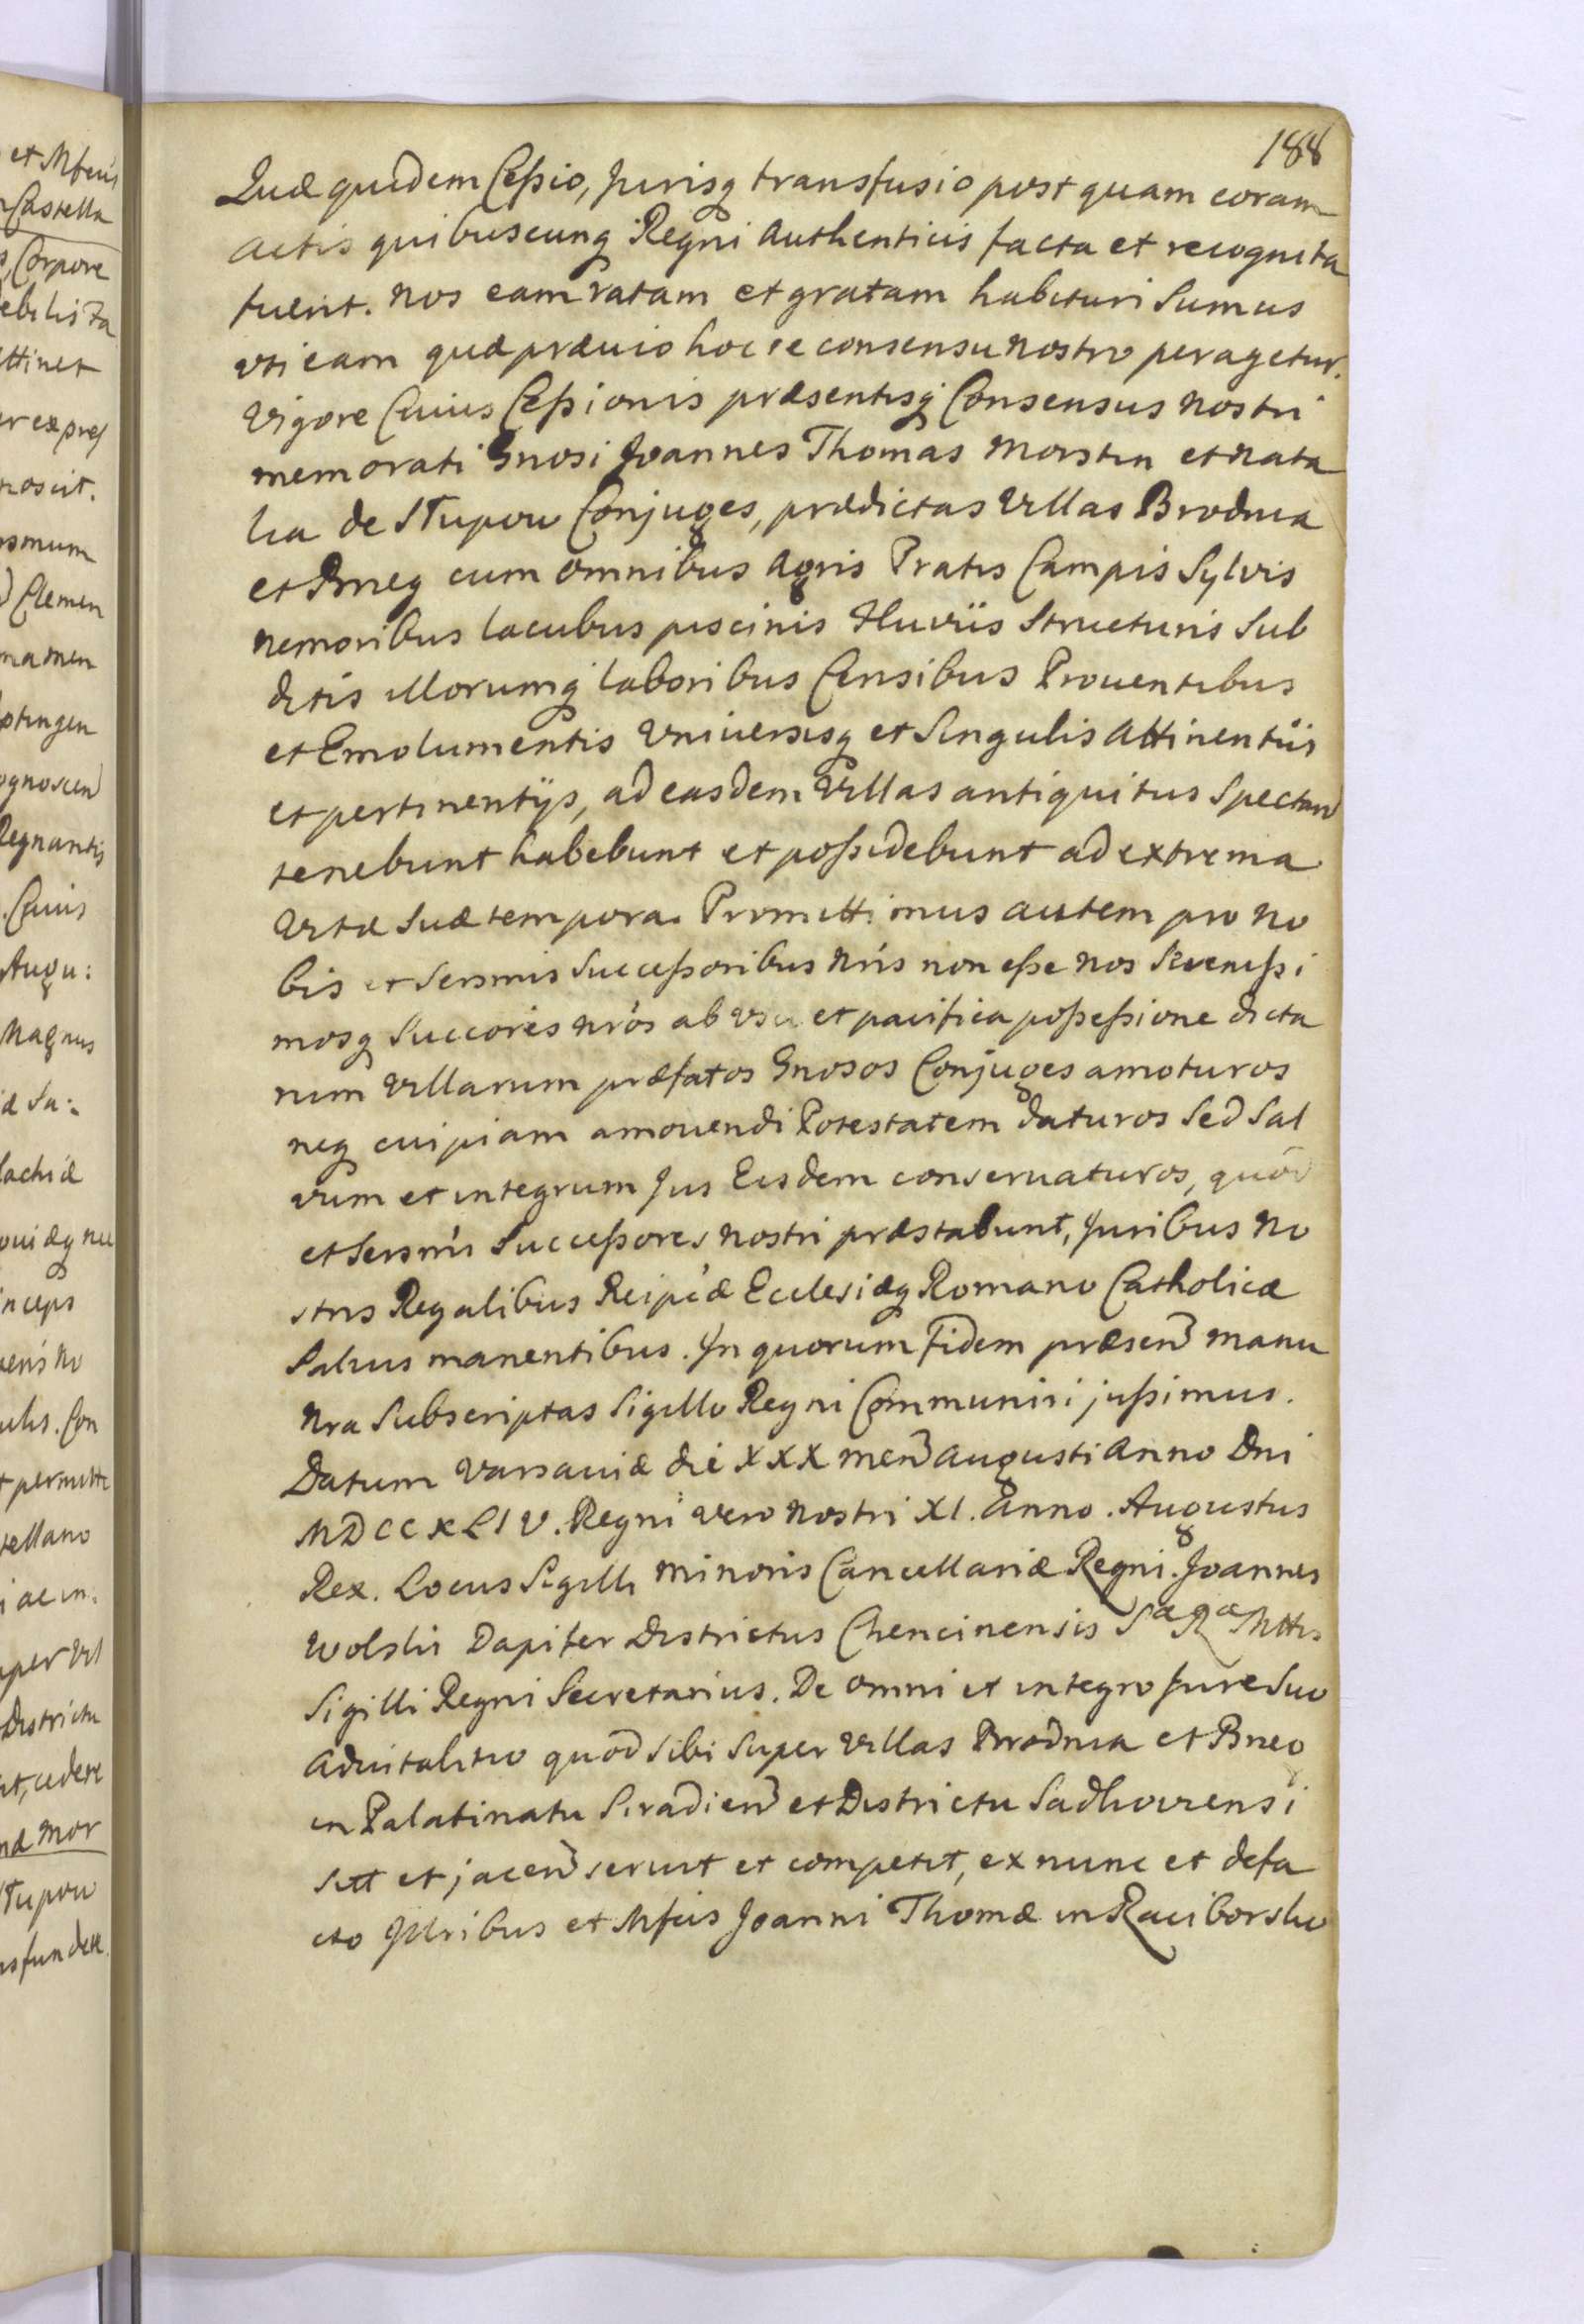 188
Quæ quidem Cessio, Jurisq transfusio post quam coram
actis quibuscunq Regni Authenticis facta et recognita
fuerit. Nos eam ratam et gratam habituri sumus
uti eam quæ prævio hocce consensu nostro peragetur.
Vigore Cuius Cessionis præsentisq Consensus nostri
memorati Gnosi Joannes Thomas Morstin et Nata
lia de Stupow Conjuges, prædictas Villas Brodnia
et Brieg cum omnibus Agris Pratis Campis Sylvis
nemoribus lacubus piscinis Fluviis Structuris Sub
ditis illorumq laboribus Censibus Proventibus
et Emolumentis Universisq et Singulis attinentiis
et pertinentijs, ad easdem Villas antiquitus Spectan
tenebunt habebunt et possidebunt ad extrema
Vitæ Suæ tempora. Promittimus autem pro no
bis et Sersmis Successoribus Nris non esse nos Serenissi
mosq Succores nros ab usu et pacifica possessione dicta
rum Villarum præfatos Gnosos Conjuges amoturos
neq cuipiam amovendi Potestatem daturos Sed Sal
vum et integrum Jus Eisdem conservaturos, quod
et Sersmi Successores nostri præstabunt, Juribus No
stris Regalibus Reipcæ Ecclesiæq Romano Catholicæ
Salvis manentibus. In quorum Fidem præsen manu
Nra Subscriptas Sigillo Regni Communiri jussimus.
Datum Varsaviæ die XXX men Augusti Anno Dni
MDCCXLIV. Regni vero Nostri XI. Anno. Augustus
Rex. Locus Sigilli Minoris Cancellariæ Regni. Joannes
Wolski Dapifer Districtus Chencinensis Sæ Ræ Mttis
Sigilli Regni Secretarius. De omni et integro Jure Suo
Advitalitio quod sibi Super Villas Brodnia et Brieg
in Palatinatu Siradien et Districtu Sadkoviensi
sitt et jacen servit et competit, ex nunc et defa
cto Illribus et Mfcis Joanni Thomæ in Raciborsko
et Mfcis
Castella
Corpore
ebilita
ttinet
er expres
noscit.
smum
Clemen
namen
ptingen
ognoscen
Regnantis
Cuius
Augu:
Magnus
æ Sa:
lachiæ
nceps
ulis. Con
permitte
tellano
ac in.
per Vil
Districtu
it, cedere
næ Mor
Stupow
nsfundere